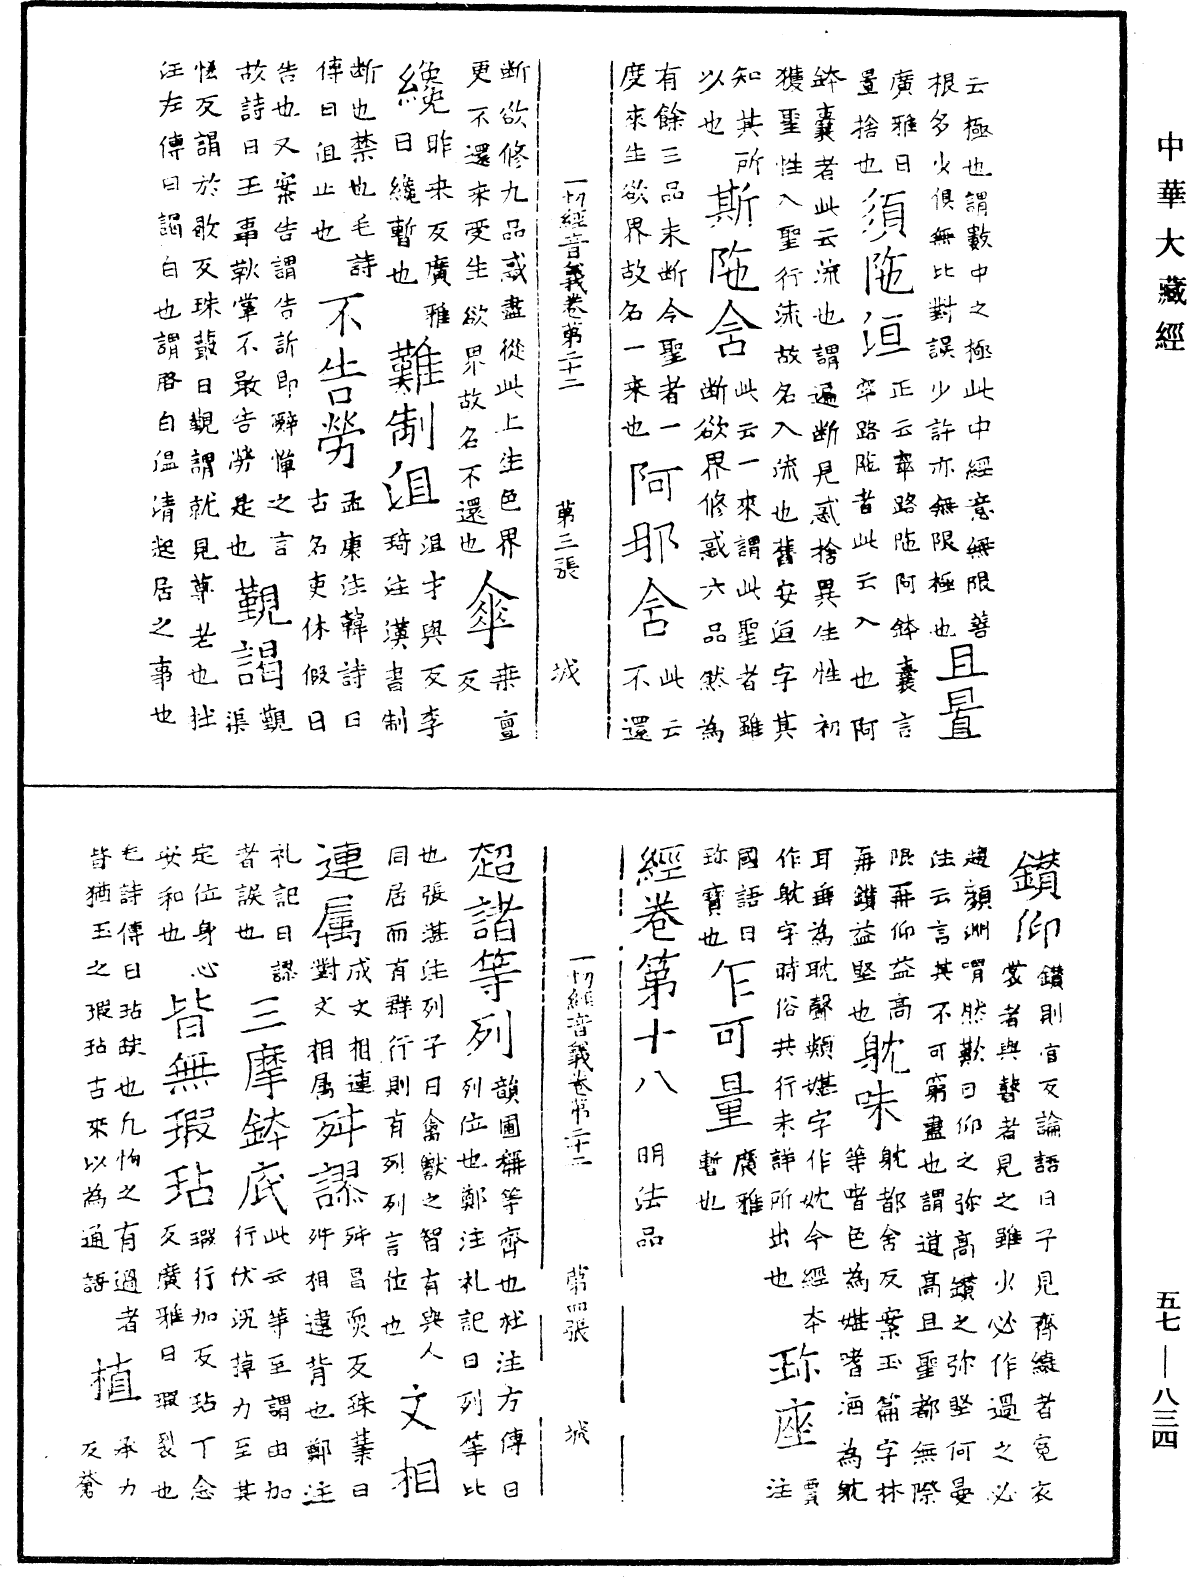 中華大藏經
云極也謂數中之極此中經意無限善
根多少俱無比對誤少許亦無限極也 且置
廣雅曰置捨也 須陁洹 正云窣路陁阿鉢囊言窣路陁者此云入也阿
鉢囊者此云流也謂遍断見惑捨異生性初
獲聖性入聖行流故名入流也舊安洹字其
知其所以也 斯陁含 此云一來謂此聖者雖断欲界修惑六品然為
有餘三品未断今聖者一度來生欲界故名一來也 阿那含 此云不還
断欲修九品惑盡從此上生色界
更不還来受生欲界故名不還也 傘 桒亶反
纔 昨来反廣雅曰纔暫也 難制沮 沮才與反李琦注漢書制
断也禁也毛詩傳曰沮止也 不告勞 孟康注韓詩曰古名吏休假曰
告也又案告謂告訴即辭憚之言
故詩曰王事鞅掌不敢告勞是也 覲謁 覲渠
恡反謂於歇反珠藂曰覲謂就見尊老也杜
注左傳曰謁白也謂啓白温清起居之事也
一切經音義卷第二十二 第三張 城
鑚仰 鑚則官反論語曰子見齊縗者冕衣裳者與瞽者見之雖少必作過之必
趍顏渊喟然歎曰仰之弥高鑚之弥堅何晏
注云言其不可窮盡也謂道高且聖都無際
限再仰益高再鑚益堅也 躭味 躭都舍反案玉篇字林等嗜色為媅嗜酒為躭
耳垂為耽聲頰媅字作妉今經本
作躭字時俗共行未詳所出也 珎座 賈注
國語曰珎寶也 乍可量 廣雅暫也
經卷第十八 明法品
超諸等列 韻圃稱等齊也杜注方傳曰列位也鄭注礼記曰列等比
也張湛注列子曰禽獸之智有與人
同居而有群行則有列列言位也 文相
連属 成文相連對文相属 舛謬 舛昌耎反珠藂曰舛相違背也鄭注
礼記曰謬者誤也 三摩鉢底 此云等至謂由加行伏沉掉力至其
定位身心安和也 皆無瑕玷 瑕行加反玷丁念反廣雅曰瑕裂也
毛詩傳曰玷缺也凢怕之有過者
皆猶玉之瑕玷古來以為通語 植 承力反蒼
一切經音義卷第二十二 第四張 城
五七—八三四